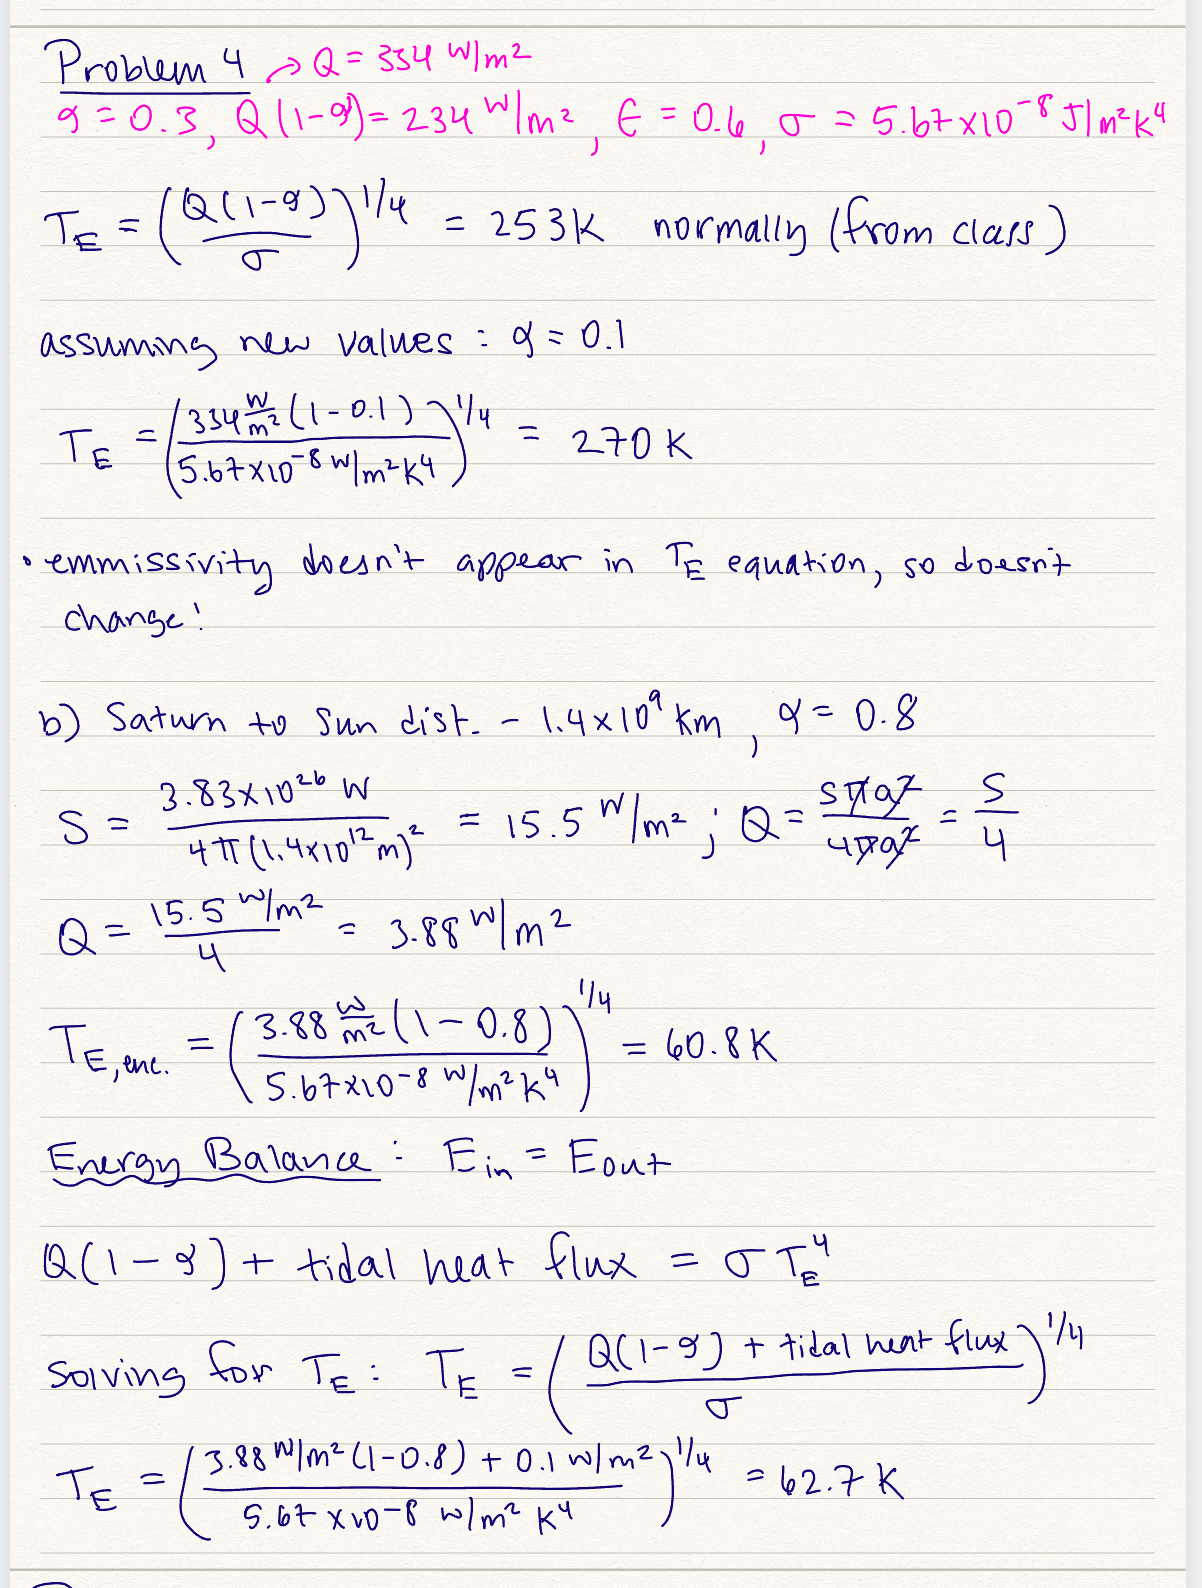 Problem 4 → Q = 334 W/m²
α = 0.3, Q(1-α) = 234 W/m², ϵ = 0.6, σ = 5.67×10⁻⁸ J/m²K⁴
T_E = (Q(1-α)/σ)^1/4 = 253K normally (from class)
assuming new values: α = 0.1
T_E = (334 W/m² (1-0.1) / 5.67×10⁻⁸ W/m²K⁴)^1/4 = 270 K
• emmissivity doesn't appear in T_E equation, so doesn't
change!
b) Saturn to Sun dist. - 1.4×10⁹ km, α = 0.8
S = 3.83×10²⁶ W / 4π(1.4×10¹² m)² = 15.5 W/m²; Q = Sπa²/4πa² = S/4
Q = 15.5 W/m² / 4 = 3.88 W/m²
T_E,enc. = (3.88 W/m² (1-0.8) / 5.67×10⁻⁸ W/m²K⁴)^1/4 = 60.8K
Energy Balance: Ein = Eout
Q(1-α) + tidal heat flux = σT_E⁴
solving for T_E: T_E = (Q(1-α) + tidal heat flux / σ)^1/4
T_E = (3.88 W/m² (1-0.8) + 0.1 W/m² / 5.67×10⁻⁸ W/m² K⁴)^1/4 = 62.7 K